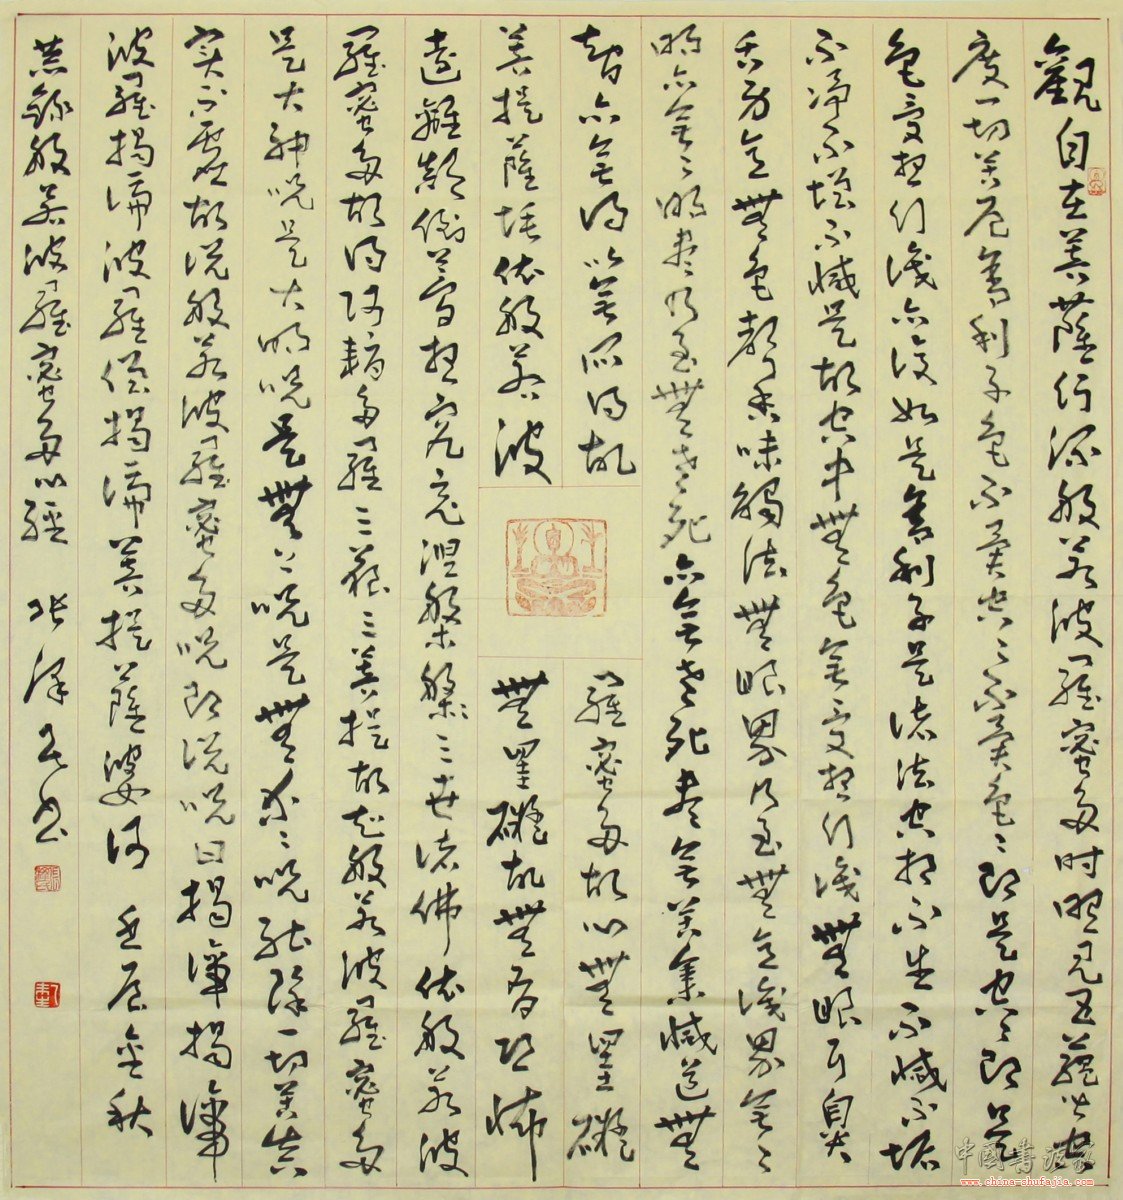 觀自在菩薩行深般若波羅蜜多时照见五蕴皆空
度一切苦厄舍利子色不異空〻不異色〻即是空〻即是
色受想行識亦復如是舍利子是诸法空相不生不滅不垢
不淨不增不減是故空中無色無受想行識無眼耳鼻
舌身意無色聲香味觸法無眼界乃至無意識界無〻
明亦無〻明盡乃至無老死亦無老死盡無苦集滅道無
智亦無得以無所得故
菩提薩埵依般若波
羅蜜多故心無罣礙
無罣礙故無有恐怖
遠離顛倒夢想究竟涅槃三世诸佛依般若波
羅蜜多故得阿耨多羅三藐三菩提故知般若波羅蜜多
是大神咒是大明咒是無上咒是無等〻咒能除一切苦真
实不虚故说般若波羅蜜多咒即说咒曰揭諦揭諦
波羅揭諦波羅僧揭諦菩提薩婆诃 壬辰金秋
恭錄般若波羅蜜多心經 张泽
中国书法家
www.china-shufajia.com